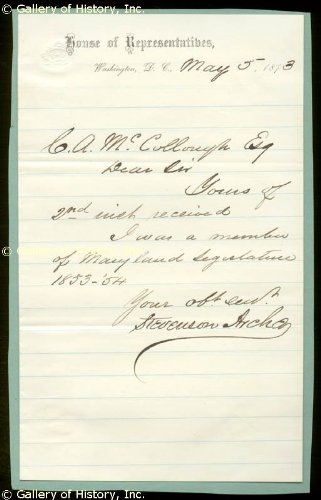 © Gallery of History, Inc.
House of Representatives,
Washington, D. C. May 5, 1873
C. A. McCollough Esq
Dear Sir
Yours of
2nd inst received
I was a member
of Maryland Legislature
1853-'54.
Your obt. servt.
Stevenson Archer
© Gallery of History, Inc.
© Gallery of History, Inc.